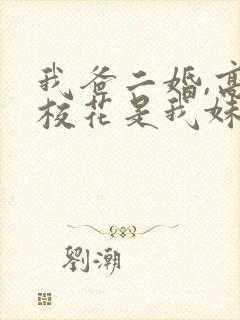 我爸二婚,高
校花是我妹
劉潮